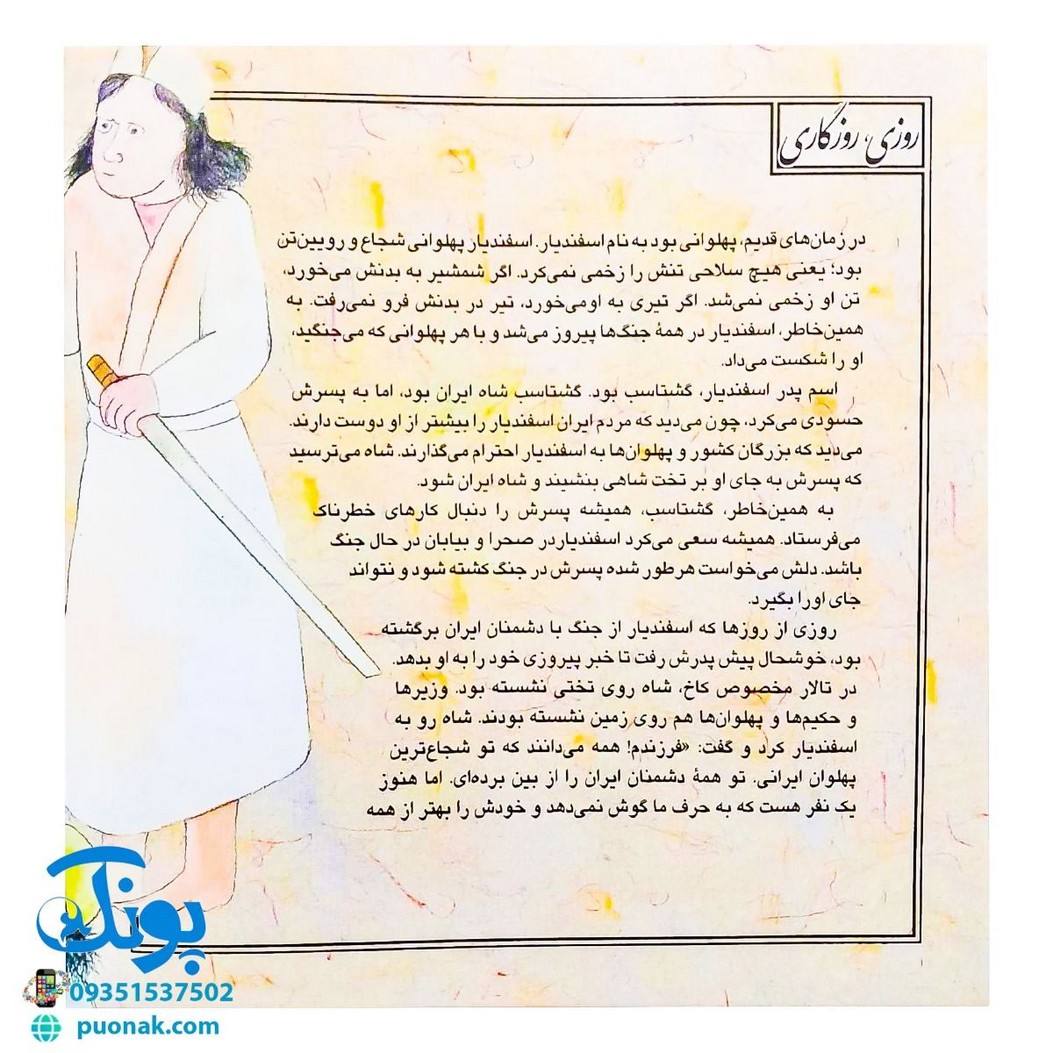 روزی، روزگاری
در زمان‌های قدیم، پهلوانی بود به نام اسفندیار. اسفندیار پهلوانی شجاع و رویین‌تن
بود؛ یعنی هیچ سلاحی تنش را زخمی نمی‌کرد. اگر شمشیر به بدنش می‌خورد،
تن او زخمی نمی‌شد. اگر تیری به اومی‌خورد، تیر در بدنش فرو نمی‌رفت. به
همین‌خاطر، اسفندیار در همهٔ جنگ‌ها پیروز می‌شد و با هر پهلوانی که می‌جنگید،
او را شکست می‌داد.
اسم پدر اسفندیار، گشتاسب بود. گشتاسب شاه ایران بود، اما به پسرش
حسودی می‌کرد، چون می‌دید که مردم ایران اسفندیار را بیشتر از او دوست دارند.
می‌دید که بزرگان کشور و پهلوان‌ها به اسفندیار احترام می‌گذارند. شاه می‌ترسید
که پسرش به جای او بر تخت شاهی بنشیند و شاه ایران شود.
به همین‌خاطر، گشتاسب، همیشه پسرش را دنبال کارهای خطرناک
می‌فرستاد. همیشه سعی می‌کرد اسفندیاردر صحرا و بیابان در حال جنگ
باشد. دلش می‌خواست هرطور شده پسرش در جنگ کشته شود و نتواند
جای اورا بگیرد.
روزی از روزها که اسفندیار از جنگ با دشمنان ایران برگشته
بود، خوشحال پیش پدرش رفت تا خبر پیروزی خود را به او بدهد.
در تالار مخصوص کاخ، شاه روی تختی نشسته بود. وزیرها
و حکیم‌ها و پهلوان‌ها هم روی زمین نشسته بودند. شاه رو به
اسفندیار کرد و گفت: «فرزندم! همه می‌دانند که تو شجاع‌ترین
پهلوان ایرانی. تو همهٔ دشمنان ایران را از بین برده‌ای. اما هنوز
یک نفر هست که به حرف ما گوش نمی‌دهد و خودش را بهتر از همه
پونک
09351537502
puonak.com